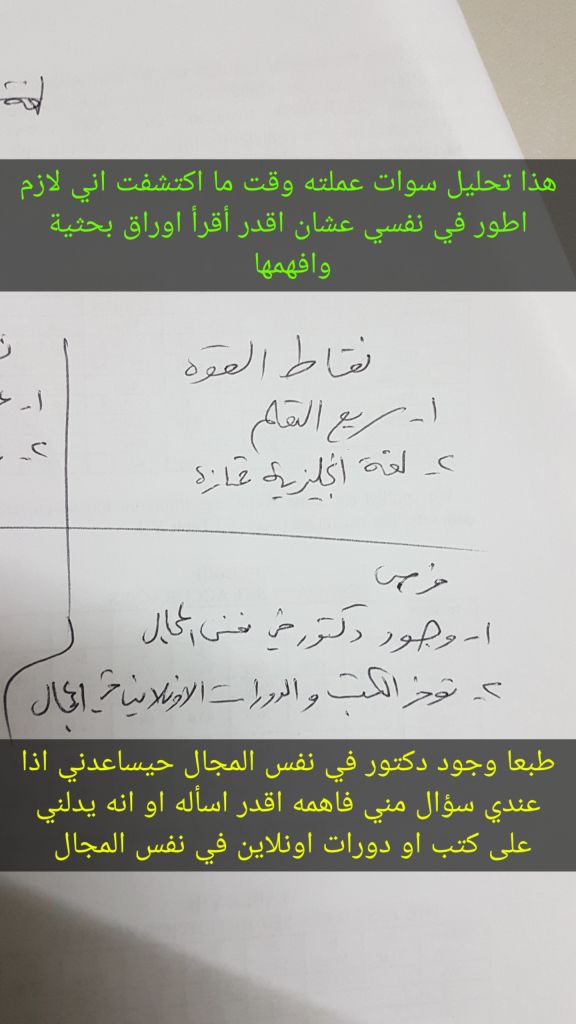 لغة
هذا تحليل سوات عملته وقت ما اكتشفت اني لازم
اطور في نفسي عشان اقدر أقرأ اوراق بحثية
وافهمها
نقاط القوه
١- سريع التعلم
٢- لغة انجليزية ممتازه
١-
٢-
فرص
١- وجود دكتور في نفس المجال
٢- توفر الكتب و الدورات الاونلاين في المجال
طبعا وجود دكتور في نفس المجال حيساعدني اذا
عندي سؤال مني فاهمه اقدر اسأله او انه يدلني
على كتب او دورات اونلاين في نفس المجال